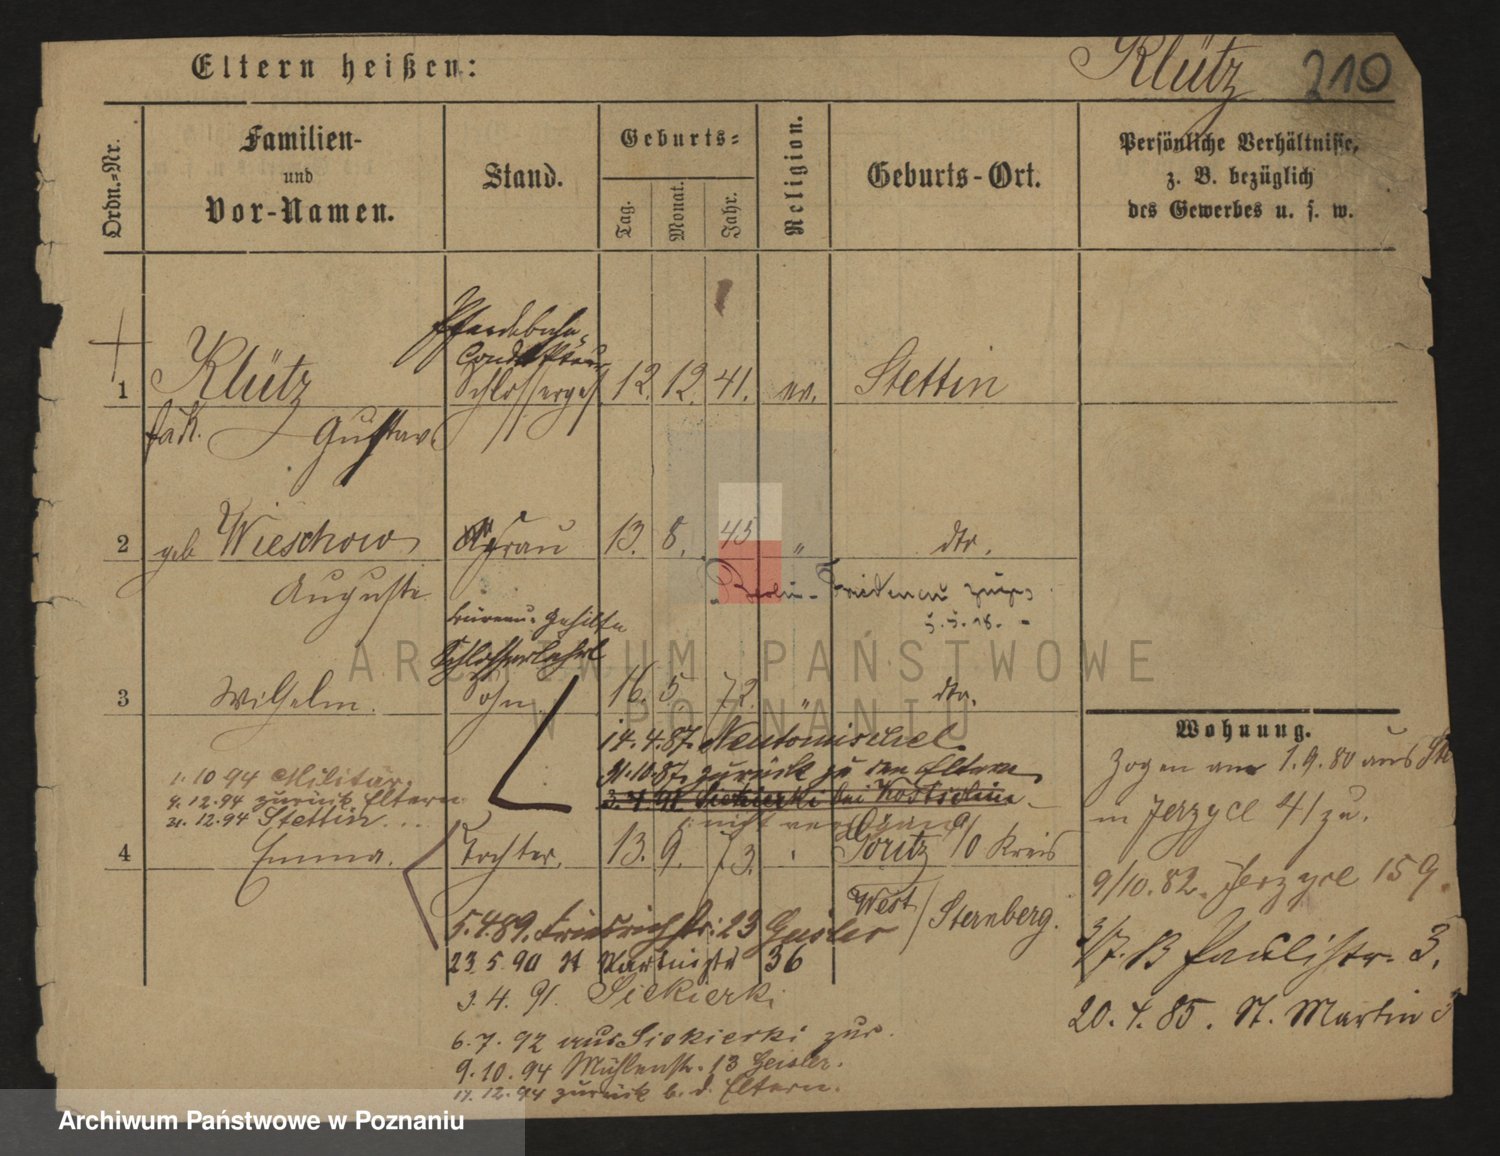 Eltern heißen:
Klütz 210
Ordn.-Nr.
Familien-
und
Vor-Namen.
Stand.
Geburts-
Tag.
Monat.
Jahr.
Religion.
Geburts-Ort.
Persönliche Verhältnisse,
z. B. bezüglich
des Gewerbes u. s. w.
Pferdebahn-
Schlosserges
1 Klütz 12. 12. 41. ev. Stettin
Gustav
2 geb Wieschow Frau 13. 8. 45 " dto.
Auguste
Berlin-Friedenau
Bureau-Gehilfe
Schlosserlehrl
3 Wilhelm. Sohn 16. 5. 72. " dto.
14.4.87. Neutomischel.
31.10.87. zurück zu den Eltern
3.4.91 Siekierki bei
1.10 94 Militär.
4.12.94 zurück Eltern
21.12.94 Stettin
4 Emma. Tochter. 13. 9. 73. Göritz /O Kreis
West / Sternberg.
5.4.89. Friedrichstr: 23 Geisler
23.5.90 St Martinstr 36
3.4.91. Siekierki
6.7.92 aus Siekierki zur.
9.10.94 Mühlenstr. 13 Geisler.
17.12.94 zurück b. d. Eltern.
Wohnung.
Zogen am 1.9.80 aus
in Jerzyce 41 zu.
9/10.82. Jerzyce 159.
Paulistr. 3.
20.4.85. St. Martin 3
ARCHIWUM PAŃSTWOWE
W POZNANIU
Archiwum Państwowe w Poznaniu